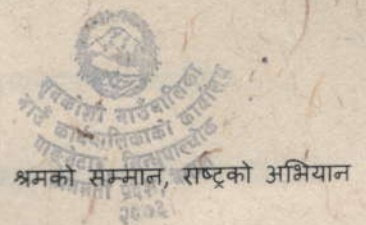 सुनकोशी गाउँपालिका
गाउँ कार्यपालिकाको कार्यालय
सिन्धुपाल्चोक
श्रमको सम्मान, राष्ट्रको अभियान